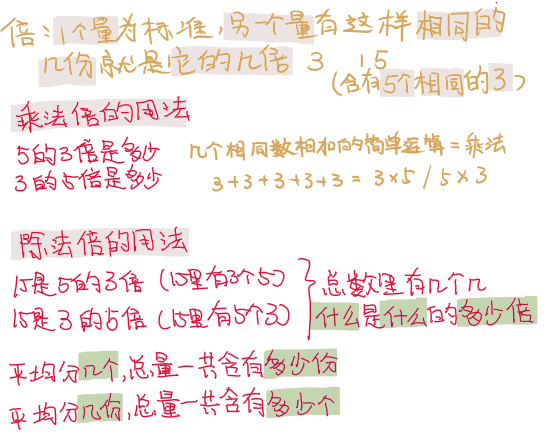 倍：1个量为标准，另一个量有这样相同的
几份就是它的几倍 3 15
（含有5个相同的3）
乘法倍的用法
5的3倍是多少
3的5倍是多少
几个相同数相加的简单运算=乘法
3+3+3+3+3=3×5/5×3
除法倍的用法
15是5的3倍（15里有3个5）
15是3的5倍（15里有5个3）
总数里有几个几
什么是什么的多少倍
平均分几个，总量一共含有多少份
平均分几份，总量一共含有多少个